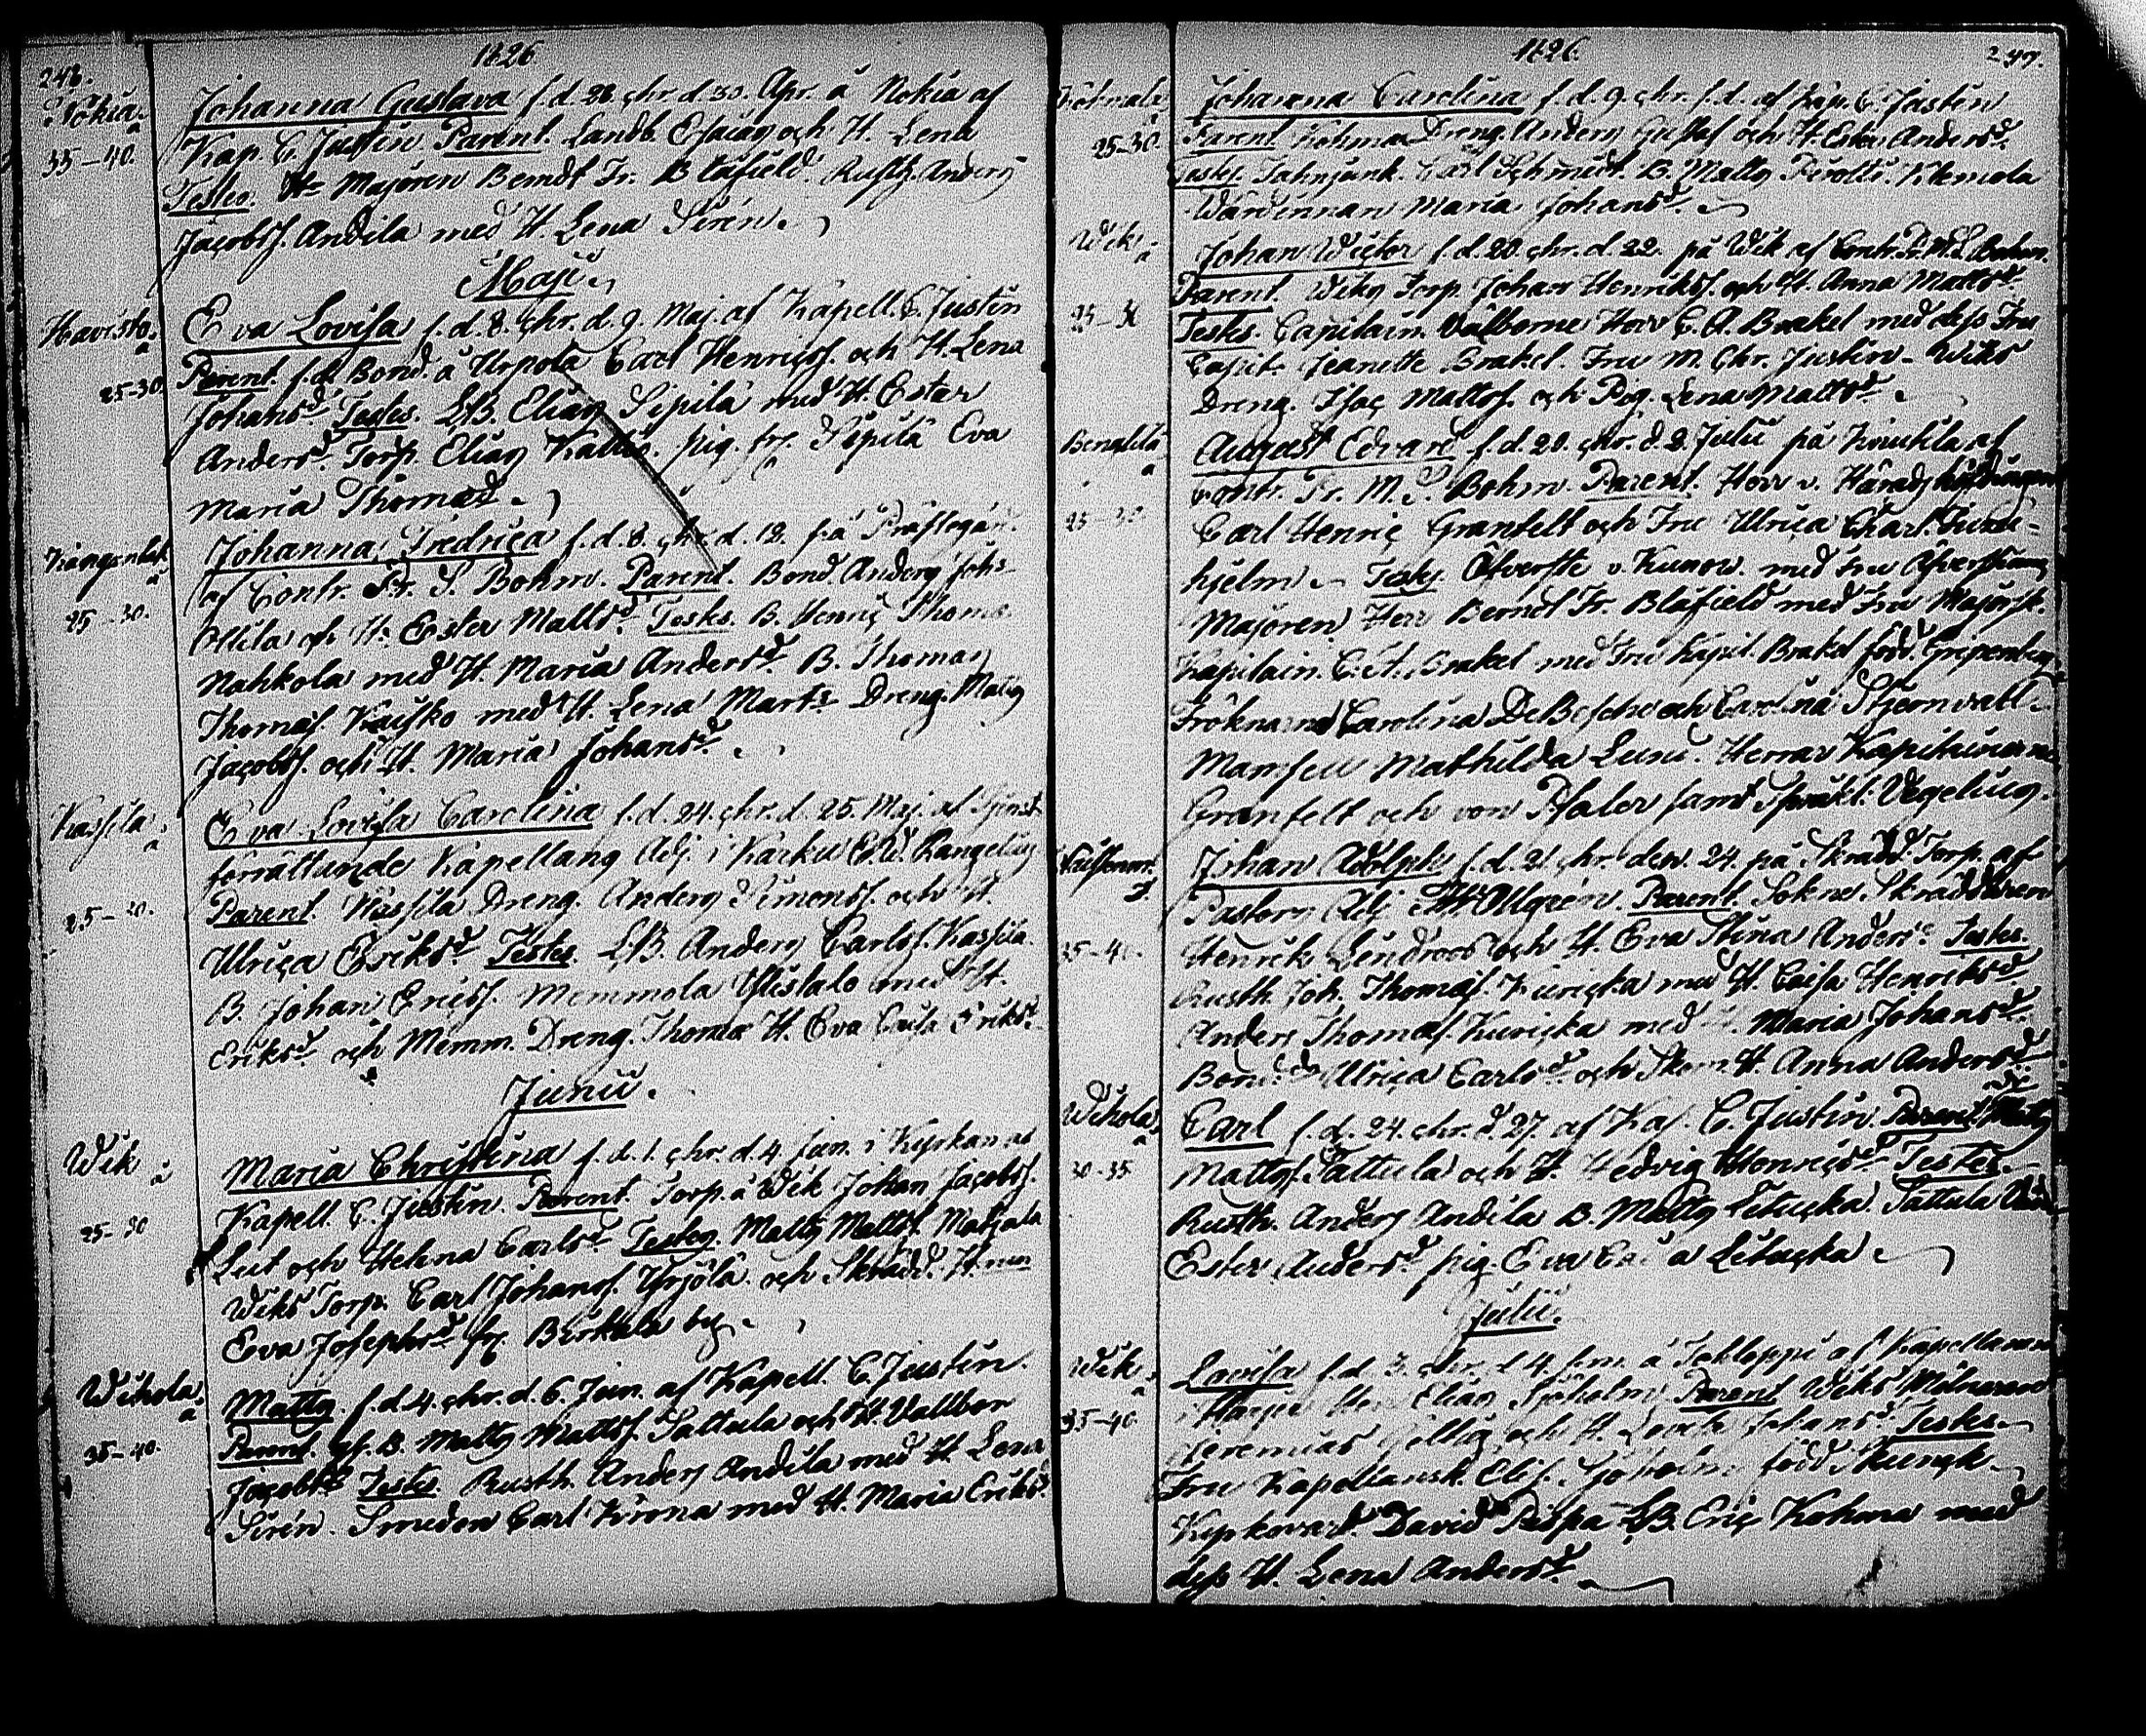 248.
1826
Nokia.
35-40.
Johanna Gustava f. d. 28. chr. d. 30. Apr. å Nokia af
Kap. C. Justin Parent. Landb. Esaias och H. Lena
Testes. H. Majoren Berndt Fr. Blåfield. Rusth. Anders
Jacobss. Andila med H. Lena Sirén.
Maji.
Havisto.
25-30.
Eva Lovisa f. d. 8. chr. d. 9. Maj. af Kapell. C. Justin
Parent. f.d. Bond. å Urpola Carl Henricss. och H. Lena
Johansd. Testes. LB. Elias Sipilä med H. Ester
Andersd. Torp. Elias pig. fr. Sipilä Eva
Maria Thomasd.
25-30.
Johanna Fredrica f. d. 8. chr. d. 12. på Prästegår.
af Contr. Pr. S. Bohm. Parent. Bond. Anders Johs
Ollila och H. Ester Mattsd. Testes. B. Henric Thoms
Nahkola med H. Maria Andersd. B. Thomas
Thomass. Kaisko med H. Lena Marts Dreng. Matts
Jacobss. och H. Maria Johansd.
Kassila.
25-30.
Eva Lovisa Carolina f. d. 24. chr. d. 25. Maj. af Tjenst
förrättande Kapellans Adj. i Karku Rangelius
Parent. Kassila Dreng. Anders Simonss. och H.
Ulrica Eriksd. Testes. LB. Anders Carlss. Kassila.
B. Johan Ericss. Memmola Ylistalo med H.
Eriksd. och Memm. Dreng. Thomas H. Eva Caisa Eriksd.
Junii.
Wik
25-30
Maria Christina f. d. 1. chr. d. 4. Jun. i Kyrkan af
Kapell. C. Justin. Parent. Torp. å Wik Johan Jacobss.
Leit och Helena Carlsd. Testes. Matts Mattss. Matjala
Wiks Torp. Carl Johanss. Yrjölä. och Skrädd. H:nen
Eva Josephsd. fr. Birkala by.
Wihola
35-40.
Matts. f. d. 4. chr. d. 6. Jun. af Kapell. C. Justin.
Parent. B. Matts Mattss. Tattula och H. Vallbor
Jacobsd. Testes. Rusth. Anders Andila med H. Lena
Sirén. Smeden Carl Krona med H. Maria Eriksd.
1826.
249.
25-30.
Johanna Carolina f. d. 9. chr. f. d. af Kap. C. Justin
Parent. Kohma Dreng. Anders Gustaf och H. Ester Andersd.
Testes. Fahnjunk. Carl Schmidt. B. Matts Pirotti. Klemola
Wärdinnan Maria Johansd.
Wik.
25-30
Johan Wictor f. d. 20. chr. d. 22. på Wik af Contr. Pr. M. S. Bohm.
Parent. Wiks Torp. Johan Henrikss. och H. Anna Mattsd.
Testes. Capitain. Välborne Herr C. A. Brakel med dess Fru
Capit. Jeanette Brakel. Fru M. Chr. Justin. Wiks
Dreng. Isac Mattss. och Pig. Lena Mattsd.
25-30
August Edvard f. d. 20. chr. d. 2. Julii på af
Contr. Pr. M. S. Bohm. Parent. Herr v. Häradshöfdingen
Carl Henric Granfelt och Fru Ulrica Charl.
hjelm. Testes. Öfverste v. Kunow. med Fru Öfverstinna
Majoren Herr Berndt Fr. Blåfield med Fru Majorsk.
Kapitain. C. A. Brakel med Fru Kapit. Brakel född Gripenberg
Fröknarna Carolina De Besche och Carolina Stjernvall
Mamsell Mathilda Herrar Kapitainerne
Granfelt och von Pfaler samt Vegelius.
35-40.
Johan Adolph f. d. 21. chr. den 24. på Skrädd. Torp. af
Pastors Adj. Allgrén. Parent. Sokne Skräddaren
Henrik Lindroos och H. Eva Stina Andersd. Testes.
Rusth. Joh. Thomass. Kuricka med H. Caisa Henriksd.
Anders Thomass. Kuricka med H. Maria Johansd.
Bond. Ulrica Carlsd. och Skom. H. Anna Andersd.
Wihola
30-35
Carl f. d. 24. chr. d. 27. af Kap. C. Justin. Parent. Matts
Mattss. Tattula och H. Hedvig Henricsd. Testes.
Rusth. Anders Andila B. Matts Letucka. Tattula
Ester Andersd. pig. Eva Caisa Letucka
Julii.
Wik.
35-40.
Lovisa f. d. 3. chr. d. 4. å af Kapellanen
Herr Elias Sjöholm. Parent. Wiks Mölnaren
Jeremias och H. Johansd. Testes
Fru Kapellansk. Elis. Sjöholm, född Munck
Kyrkovard. David Pispa LB. Eric Kohma med
dess H. Lena Andersd.